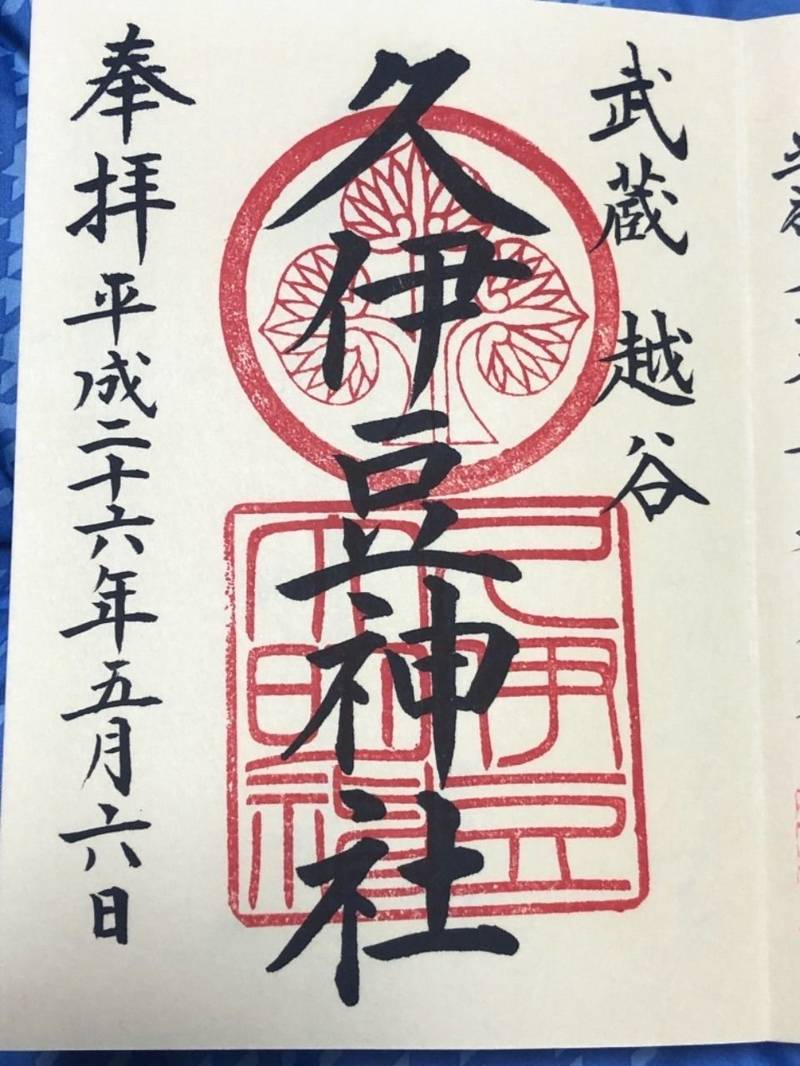 武蔵 越谷
久伊豆神社
奉拝 平成二十六年五月六日